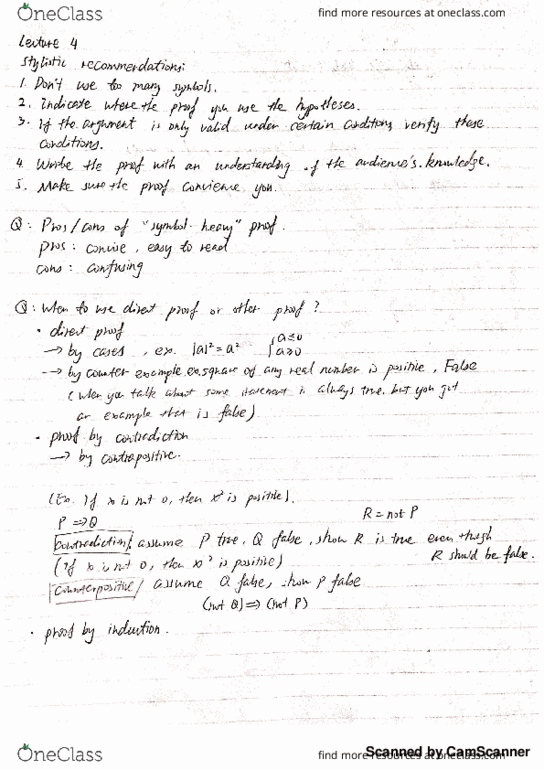 OneClass
find more resources at oneclass.com
Lecture 4
Stylistic recommendations:
1. Don't use too many symbols.
2. Indicate where the proof you use the hypotheses.
3. If the argument is only valid under certain conditions verify these
conditions.
4. Write the proof with an understanding of the audience's knowledge.
5. Make sure the proof convience you.
Q: Pros/cons of "symbol-heavy" proof.
pros: concise, easy to read
cons: confusing
Q: When to use direct proof or other proof?
• direct proof
→ by cases, ex. |a|² = a² { a≤0
a≥0
→ by counter example. ex. square of any real number is positive, False
(when you talk about some statement is always true. but you get
an example that is false)
• proof by contradiction
→ by contrapositive.
(Ex. If x is not 0, then x² is positive).
P ⇒ Q R = not P
Contradiction/ assume P true, Q false, show R is true even though
(If x is not 0, then x² is positive) R should be false.
Contrapositive/ assume Q false, show P false
(not Q) ⇒ (not P)
• proof by induction.
OneClass
find more resources at oneclass.com
Scanned by CamScanner